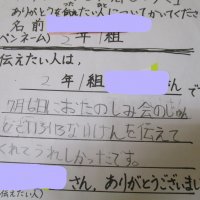 ありがとうを伝えたい人についてかいてくださ
名前
ペンネーム) 2年1組
伝えたい人は、
2年1組 さんで
7月4日におたのしみ会の
いろいろないけんを伝えて
くれてうれしかったです。
さん、ありがとうございまし
伝えたい人)